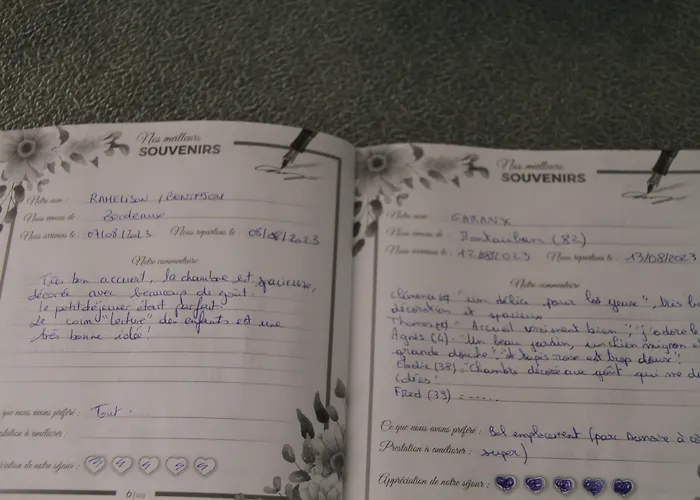 Nos meilleurs
SOUVENIRS
Notre nom : RAHELISON / BENITSOU
Nous venons de : Bordeaux
Nous arrivons le : 07/08/2023 Nous repartons le : 08/08/2023
Notre commentaire
Très bon accueil, la chambre est spacieuse,
décorée avec beaucoup de goût.
Le petit déjeuner était parfait
Le coin "lecture" des enfants est une
très bonne idée!
que nous avons préféré : Tout.
à améliorer :
de notre séjour :
6
Nos meilleurs
SOUVENIRS
Notre nom : GARANX
Nous venons de : Montauban (82)
Nous arrivons le : 12/08/2023 Nous repartons le : 13/08/2023
Notre commentaire
"un délice pour les yeux", très
décoration et spacieux
Thomas "Accueil vraiment bien", "j'adore
Agnès (4) "Un beau jardin, un chien mignon et
grande douche", "le tapis rose est trop doux"!
Elodie (38) "Chambre décorée avec goût qui me
idées"
FRED (39) = .....
Ce que nous avons préféré : Bel emplacement (parc à
Prestation à améliorer : super)
Appréciation de notre séjour :